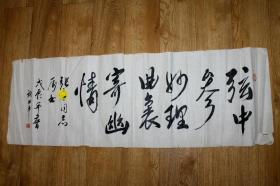 弦中
参
妙理
曲裏
寄幽
情
同志
属书
戊辰年书